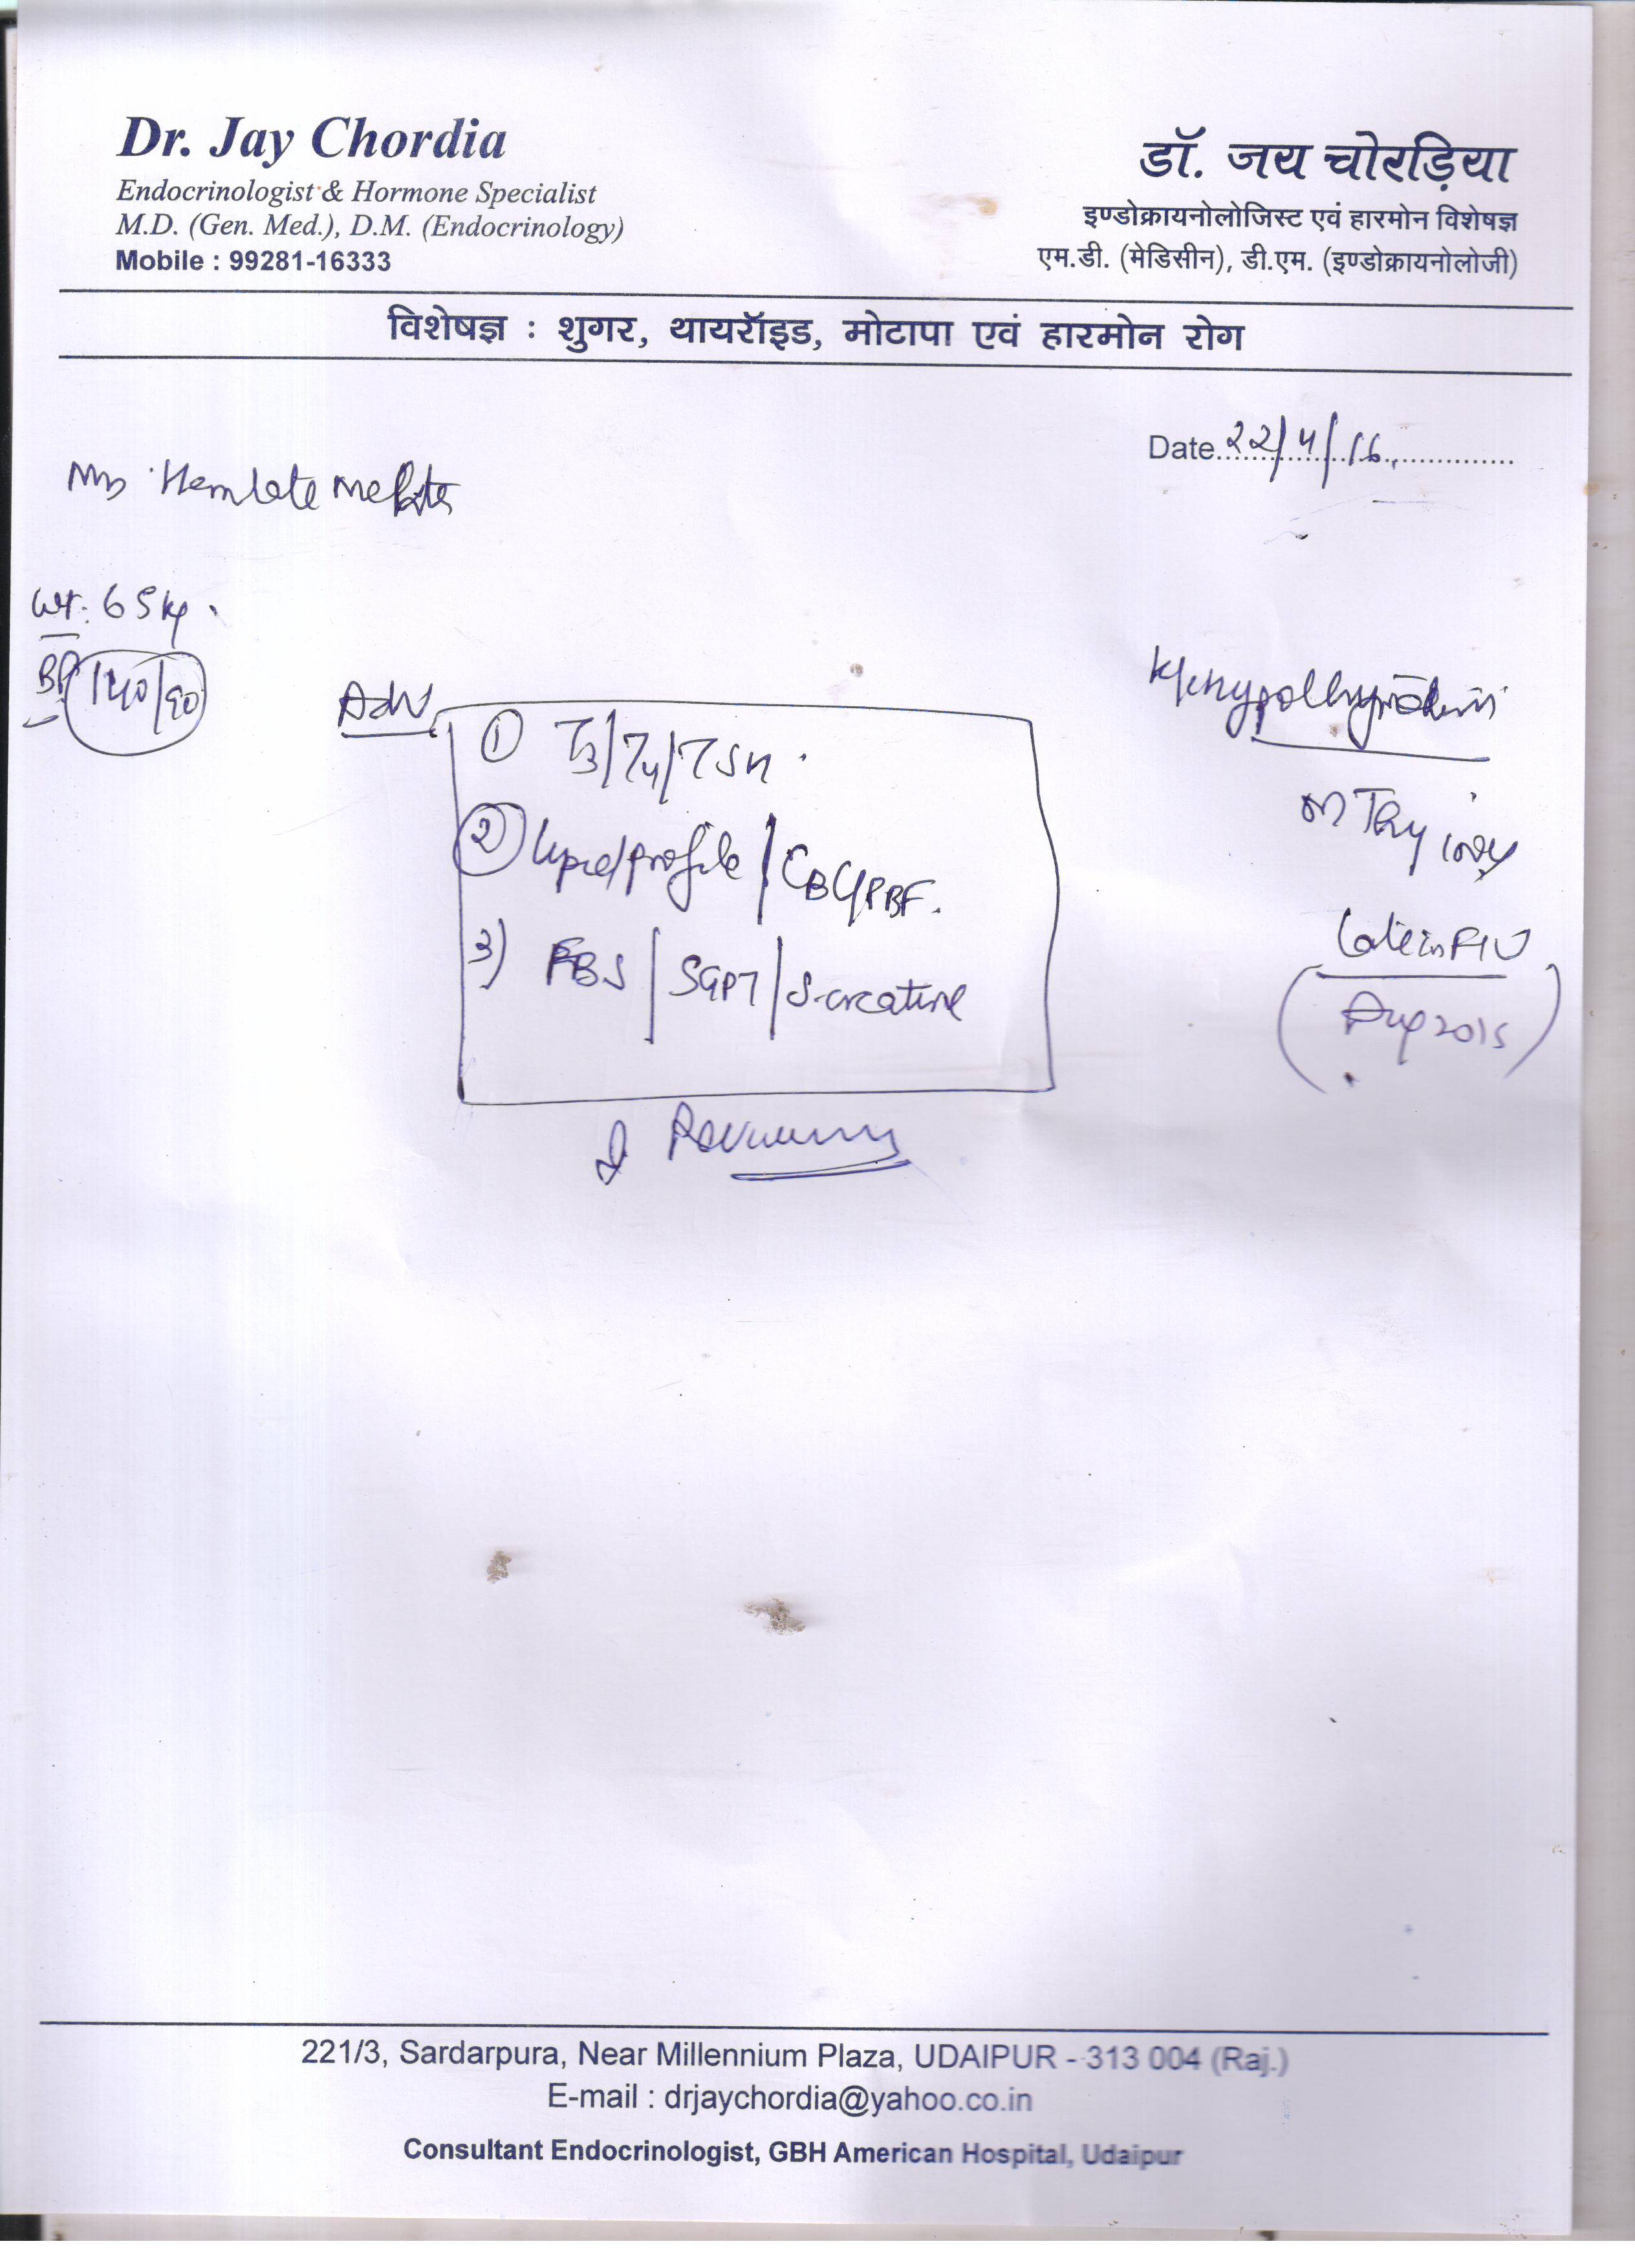 Dr. Jay Chordia
Endocrinologist & Hormone Specialist
M.D. (Gen. Med.), D.M. (Endocrinology)
Mobile : 99281-16333
डॉ. जय चोरड़िया
इण्डोक्रायनोलोजिस्ट एवं हारमोन विशेषज्ञ
एम.डी. (मेडिसीन), डी.एम. (इण्डोक्रायनोलोजी)
विशेषज्ञ : शुगर, थायरॉइड, मोटापा एवं हारमोन रोग
Date 22/4/16
Hemlate
Wt: 65 kg
BP 140/90
Adv
① T3/T4/TSH
② lipid profile / CBC/PBF.
3) FBS / SGPT / S.creatine
Late in F/U
(Aug 2015)
221/3, Sardarpura, Near Millennium Plaza, UDAIPUR - 313 004 (Raj.)
E-mail : drjaychordia@yahoo.co.in
Consultant Endocrinologist, GBH American Hospital, Udaipur